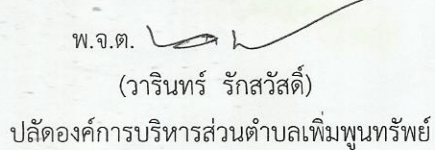 พ.จ.ต.
(วารินทร์ รักสวัสดิ์)
ปลัดองค์การบริหารส่วนตำบลเพิ่มพูนทรัพย์